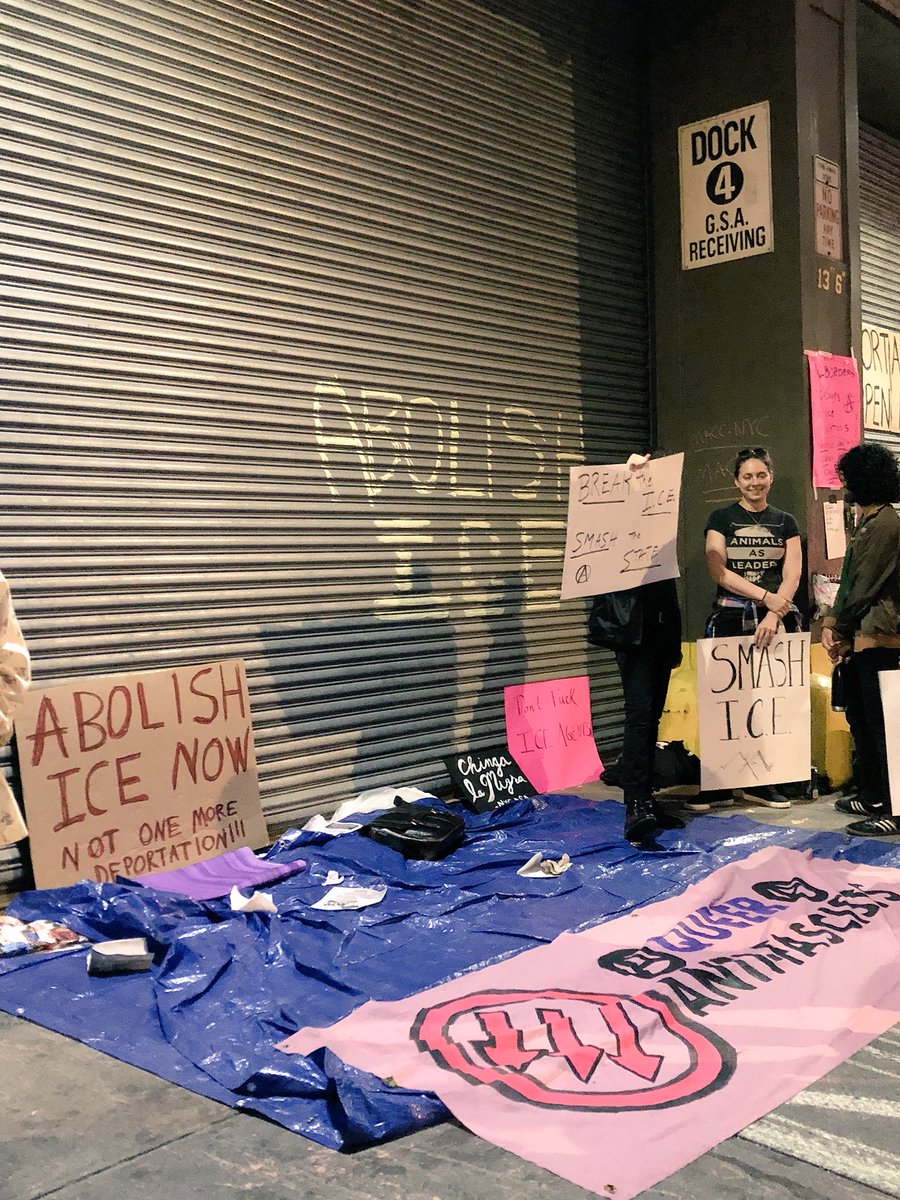 DOCK
4
G.S.A.
RECEIVING
NO
PARKING
ANY
TIME
13'6"
ABOLISH
ICE
BREAK the
I.C.E.
SMASH the
STATE
ANIMALS
AS
LEADER
SMASH
ICE
ABOLISH
ICE NOW
NOT ONE MORE
DEPORTATION!!!
Don't Fuck
ICE AGENTS
Chinga
la Migra
QUEER
ANTIFASCISTS
MACC.NYC
BORDERS